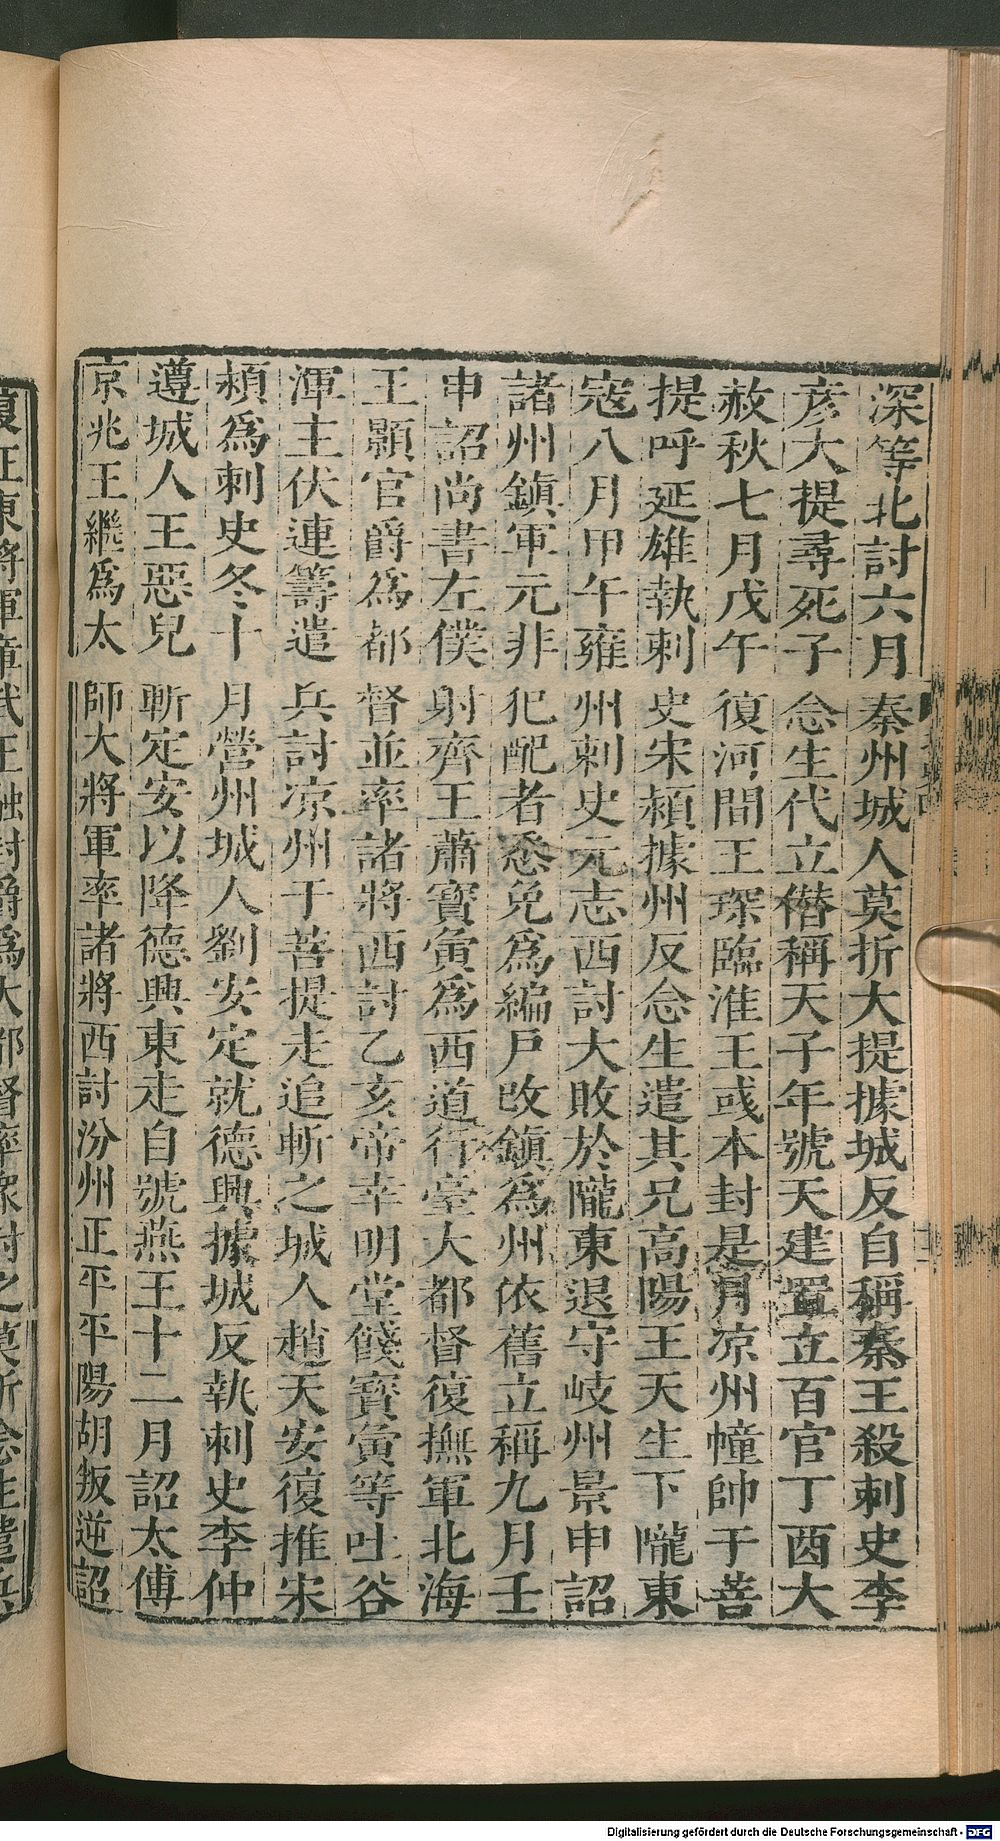 深等北討六月秦州城人莫折大提據城反自稱秦王殺刺史李
彥大提尋死子念生代立僭稱天子年號天建置立百官丁酉大
赦秋七月戊午復河間王琛臨淮王彧本封是月凉州幢帥于菩
提呼延雄執刺史宋頴據州反念生遣其兄高陽王天生下隴東
寇八月甲午雍州刺史元志西討大敗於隴東退守岐州景申詔
諸州鎮軍元非犯配者悉免爲編戶改鎮爲州依舊立稱九月壬
申詔尚書左僕射齊王蕭寶夤爲西道行臺大都督復撫軍北海
王顥官爵爲都督並率諸將西討乙亥帝幸明堂餞寶夤等吐谷
渾主伏連籌遣兵討凉州于菩提走追斬之城人趙天安復推宋
頴爲刺史冬十月營州城人劉安定就德興據城反執刺史李仲
遵城人王惡兒斬定安以降德興東走自號燕王十二月詔太傅
京兆王繼爲太師大將軍率諸將西討汾州正平平陽胡叛逆詔
復征東將軍章武王融封爵爲大都督率衆討之莫折念生遣兵
Digitalisierung gefördert durch die Deutsche Forschungsgemeinschaft - DFG